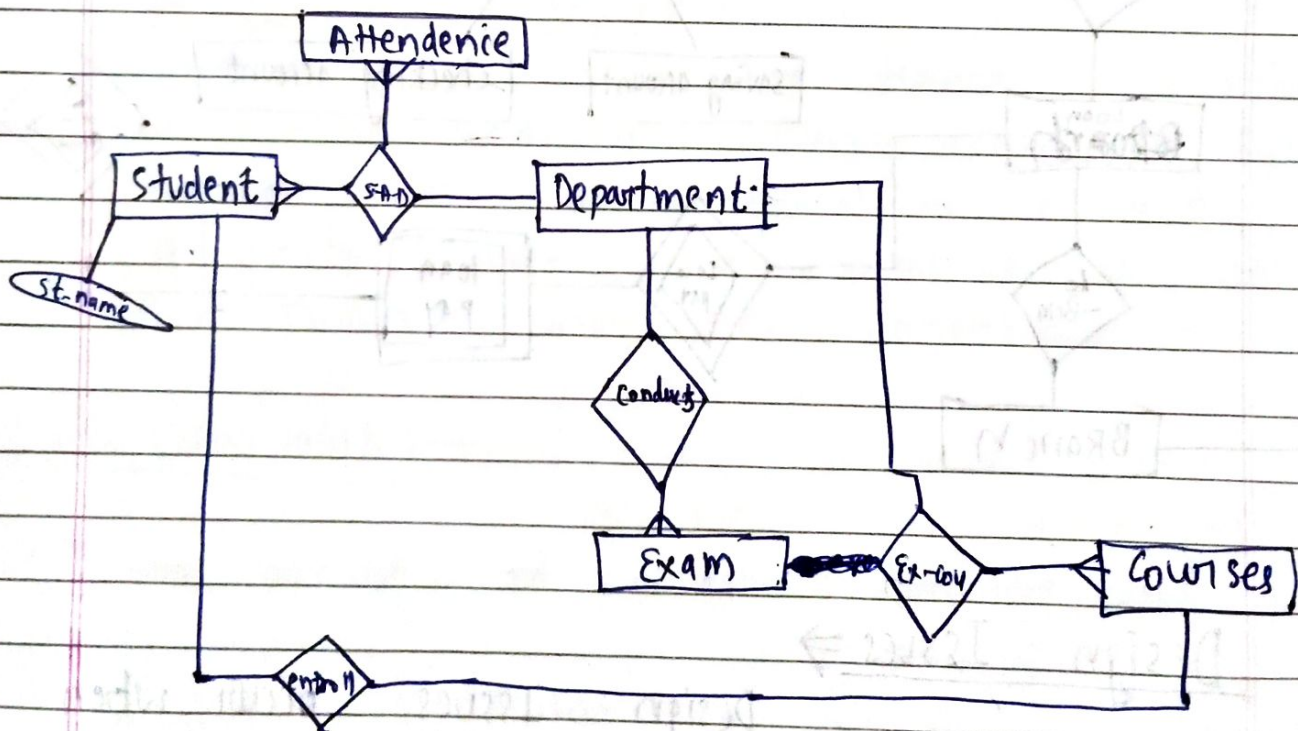 Attendenie
Student
S-A-D
Department
St-name
Conducts
Exam
Ex-cou
Courses
enroll